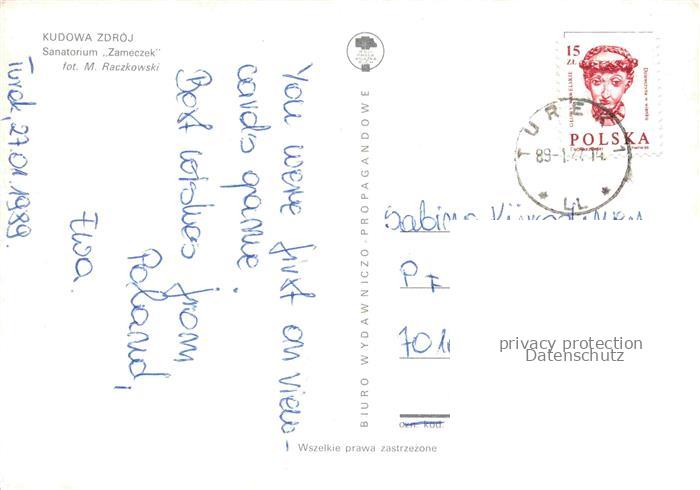 KUDOWA ZDRÓJ
Sanatorium „Zameczek"
fot. M. Raczkowski
You were first on view-
cards game!
Best wishes from
Poland!
Ewa.
Turek, 27.01.1989.
BIURO WYDAWNICZO-PROPAGANDOWE
15
ZŁ
GŁOWY WAWELSKIE
Dziewczyna w wianku
POLSKA
TUREK 1
89-1.27.14
* LL *
Sabine
PF
701
privacy protection
Datenschutz
ozn. kod.
Wszelkie prawa zastrzeżone